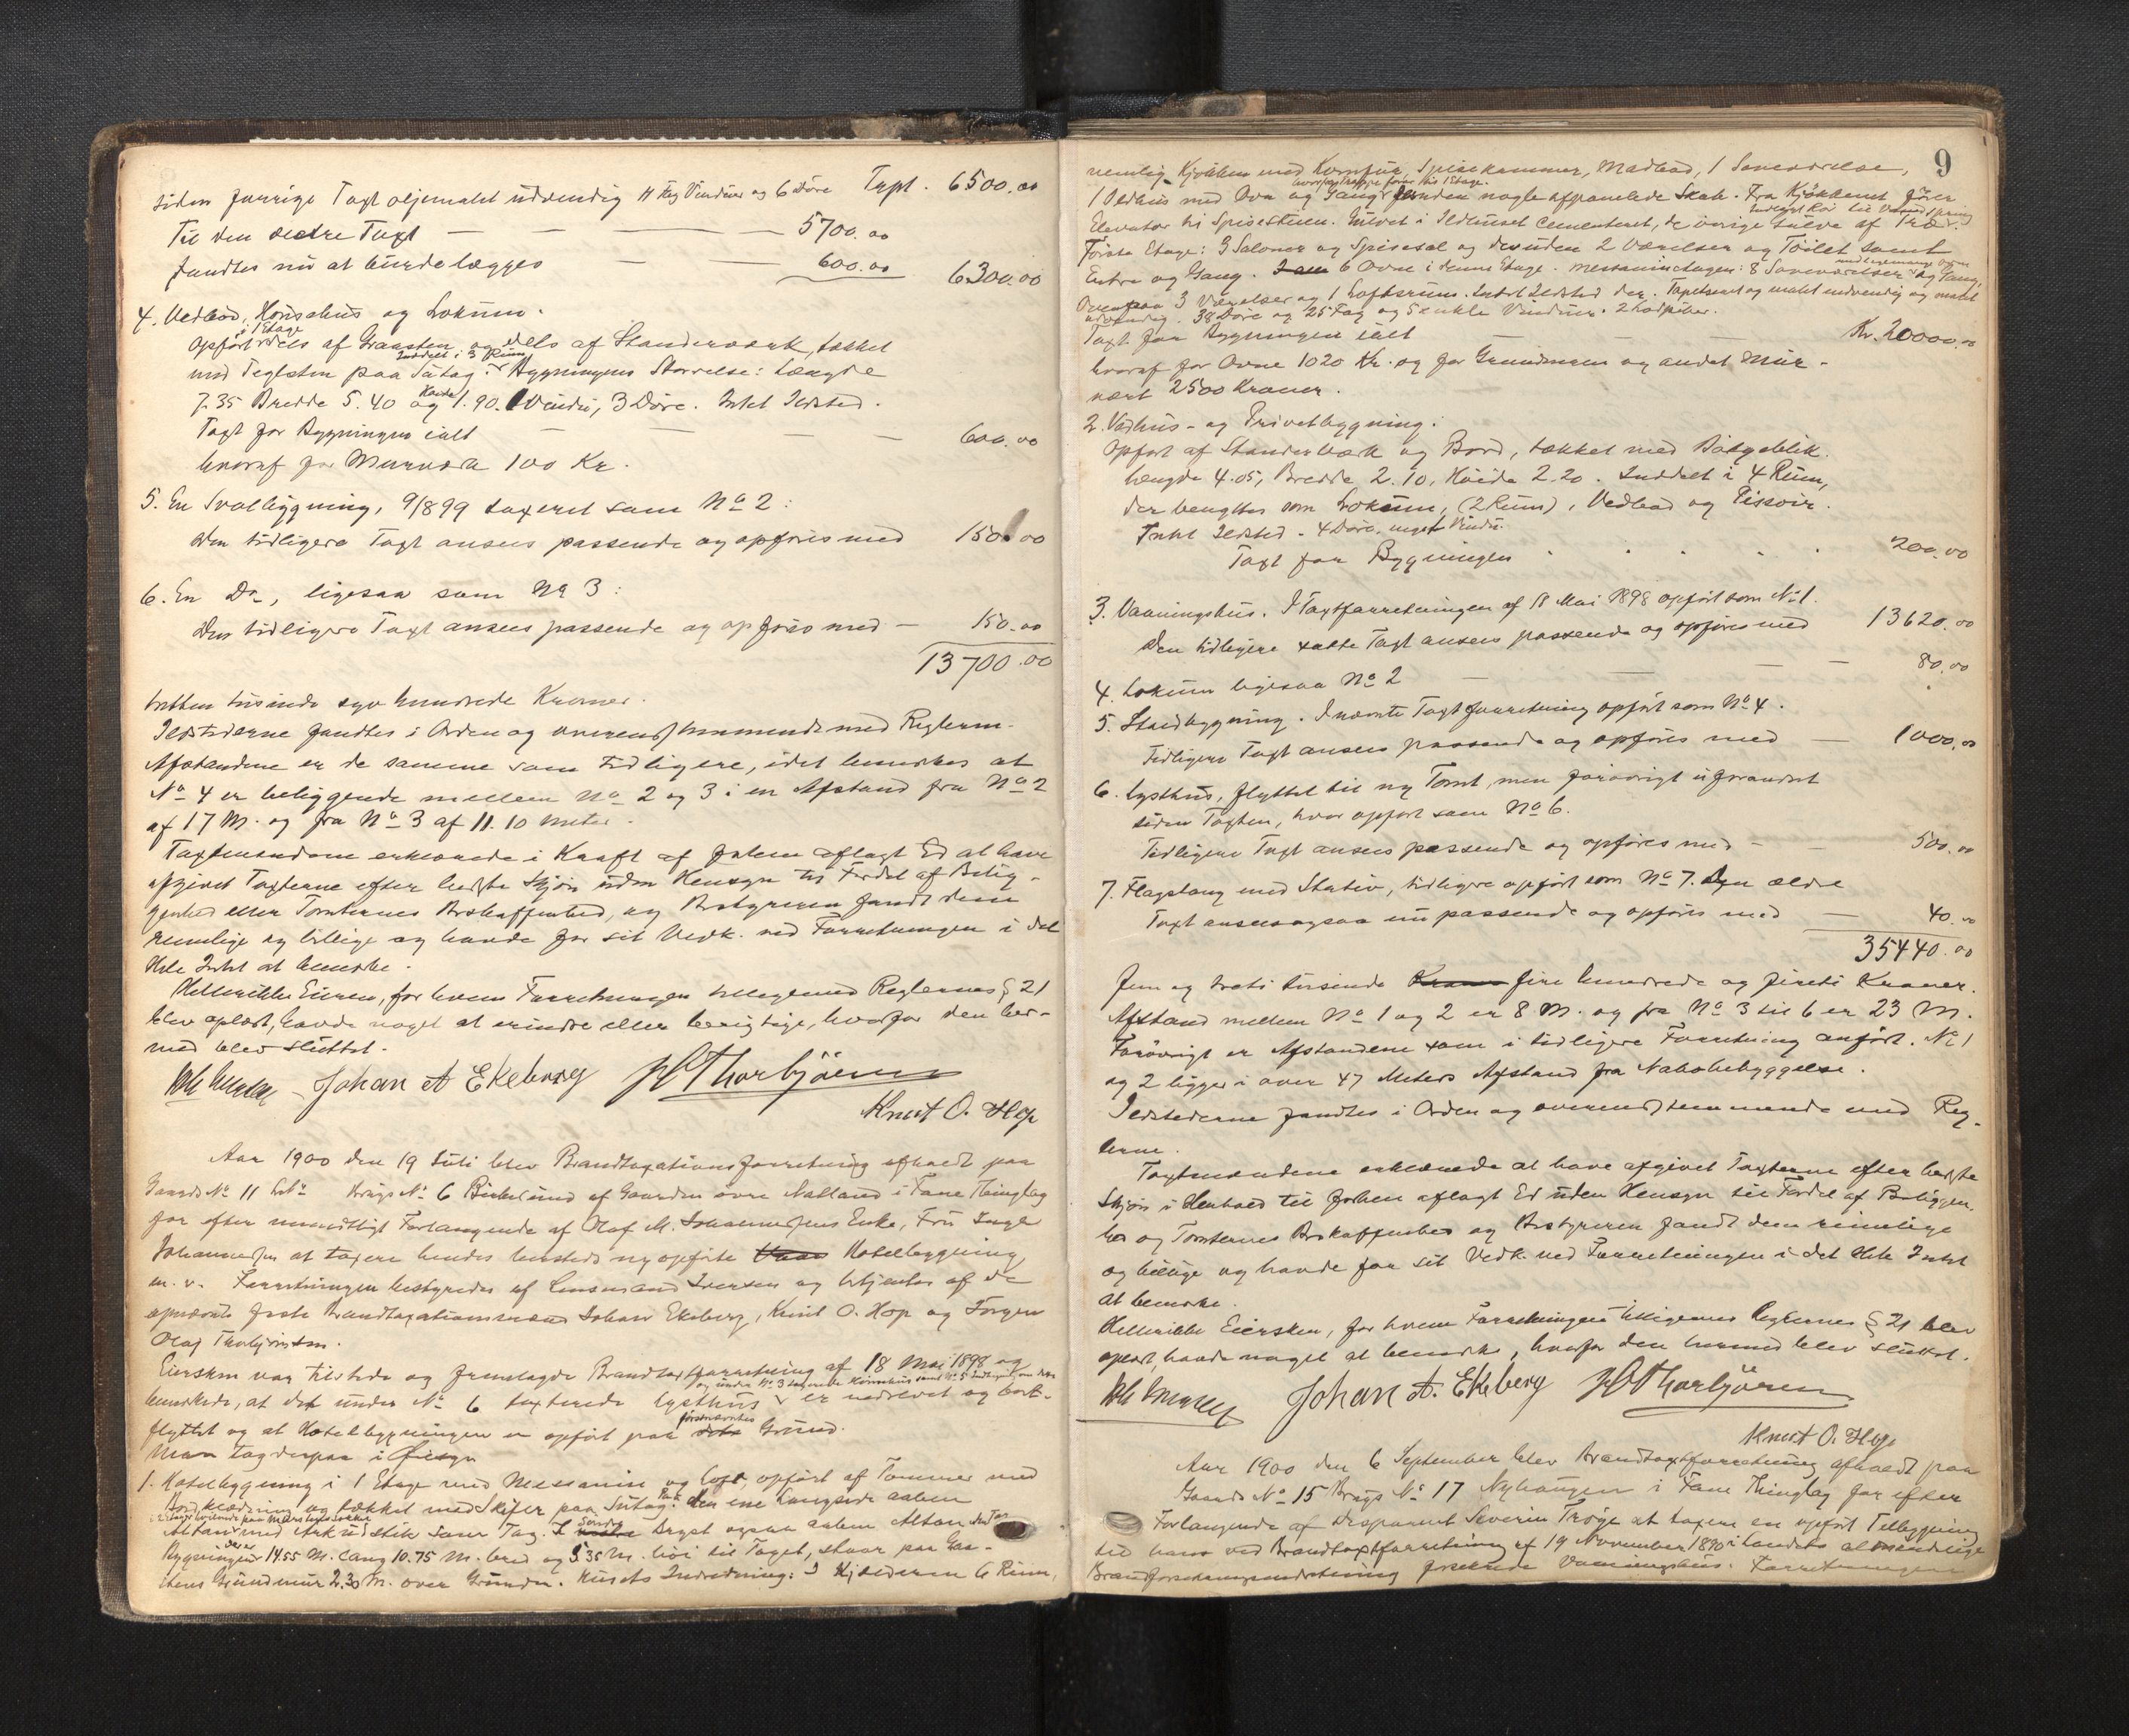 siden forrige Taxt oljemalet udvendig 11 Fag Vinduer og 6 Döre Trpt. 6500.00
Til den ældre Taxt — — — 5700.00
fandtes nu at burde lægges — — 600.00 6300.00
4. Vedbod, Hönsehus og Lokum.
Opfört i 1 Etage dels af Graasten og dels af Standerværk, tækket
med Teglsten paa Sutag. Inddelt i 3 Rum. Bygningens Störrelse: Længde
7.35 Bredde 5.40 og Höide 1.90. 1 Vindu, 3 Döre. Intet Ildsted.
Taxt for Bygningen ialt — — — — 600.00
hvoraf for Murværk 100 Kr.
5. En Svalbygning, 9/899 taxeret som No 2:
Den tidligere Taxt ansees passende og opföres med 150.00
6. En Do, ligesaa som No 3:
Den tidligere Taxt ansees passende og opföres med — 150.00
13700.00
tretten tusinde syv hundrede Kroner.
Ildstederne fandtes i Orden og overensstemmende med Reglerne.
Afstandene er de samme som tidligere, idet bemerkes at
No 4 er beliggende mellem No 2 og 3 i en Afstand fra No 2
af 17 M. og fra No 3 af 11.10 Meter.
Taxtmændene erklærede i Kraft af forhen aflagt Ed at have
afgivet Taxterne efter bedste Skjön uden Hensyn til Fordel af Belig-
genhed eller Tomternes Beskaffenhed, og Bestyreren fandt dem
rimelige og billige og havde for sit Vedk. ved Forretningen i det
Hele Intet at bemerke.
Hellerikke Eieren, for hvem Forretningen tilligemed Reglernes § 21
blev oplæst, havde noget at erindre eller berigtige, hvorfor den her-
med blev sluttet.
Johan A Ekeberg JOThorbjörnsen
Knut O. Hop
Aar 1900 den 19 Juli blev Brandtaxationsforretning afholdt paa
Gaards No 11 Brugs No 6 Birkelund af Gaarden övre Natland i Fane Thinglag
for efter mundtligt Forlangende af Olaf M. Johannessens Enke, Fru Inger
Johannessen at taxere hendes hersteds nyopförte Hotelbygning
m. v. Forretningen bestyredes af Lensmand Iversen og betjentes af de
opnævnte faste Brandtaxationsmænd Johan Ekeberg, Knut O. Hop og Jörgen
Olaj Thorbjörnsen.
Eiersken var tilstede og fremlagde Brandtaxtforretning af 18 Mai 1898 og
bemerkede, at det under No 6 taxerede Lysthus er nedrevet og bort-
flyttet og at Hotelbygningen er opfört paa förstnævntes Grund.
Man tog derpaa i Öiesyn
1. Hotelbygning i 1 Etage med Messanin og Loft, opfört af Tömmer med
Bordklædning og tækket med Skifer paa Sutag. Paa den ene Langside aaben
Altan med Ark udstik over Tag. I Söndre Bryst ogsaa aaben Altan
Bygningen er 14.55 M. lang 10.75 M. bred og 5.35 M. höi til Taget, staar paa Graa-
stens Grundmur 2.30 M. over Grunden. Husets Indredning: I Kjælderen 6 Rum,
9
nemlig Kjökken med Komfur, Spisekammer, Madbod, 1 Soveværelse,
1 Ildhus med Ovn og Gang hvorfra Trappe förer til 1 Etage. foruden nogle afpanelede Skab. Fra Kjökkenet förer
Elevator til Spisestuen. Gulvet i Ildhuset cementeret, de övrige Gulve af Træ.
Förste Etage: 3 Saloner og Spisesal og desuden 2 Værelser og Toilet samt
Entre og Gang. 6 Ovne i denne Etage. Messaninetagen: 8 Soveværelser og Gang,
Ovenpaa 3 Værelser og 1 Loftsrum. Intet Ildsted der. Tapetseret og malet indvendig og malet
udvendig. 38 Döre og 25 Fag og 5 enkle Vinduer. 2 Kadpiber.
Taxt for Bygningen ialt — — — Kr. 20000.00
hvoraf for Ovne 1020 Kr. og for Grundmuren og andet Mur-
værk 2500 Kroner.
2. Vedhus- og Privetbygning.
Opfört af Standerværk og Bord, tækket med Bölgeblik.
Længde 4.05, Bredde 2.10, Höide 2.20. Inddelt i 4 Rum,
der benyttes som Lokum, (2 Rum), Vedbod og Pissoir.
Intet Ildsted. 4 Döre, noget Vindu.
Taxt for Bygningen . . . . 200.00
3. Vaaningshus. I Taxtforretningen af 18 Mai 1898 opfört som No 1.
Den tidligere satte Taxt ansees passende og opföres med 13620.00
4. Lokum ligesaa No 2 — — — 80.00
5. Staldbygning. I nævnte Taxtforretning opfört som No 4.
Tidligere Taxt ansees passende og opföres med — 1000.00
6. Lysthus, flyttet til ny Tomt, men forövrigt uforandret
siden Taxten, hvor opfört som No 6.
Tidligere Taxt ansees passende og opföres med — 500.00
7. Flagstang med Stativ, tidligere opfört som No 7. Den ældre
Taxt ansees ogsaa nu passende og opföres med — 40.00
35440.00
Fem og treti tusinde fire hundrede og firti Kroner.
Afstand mellem No 1 og 2 er 8 M. og fra No 3 til 6 er 23 M.
Forövrigt er Afstandene som i tidligere Forretning anfört. No 1
og 2 ligger i over 47 Meters Afstand fra Nabobebyggelse.
Ildstederne fandtes i Orden og overensstemmende med Reg-
lerne.
Taxtmændene erklærede at have afgivet Taxterne efter bedste
Skjön i Henhold til forhen aflagt Ed uden Hensyn til Fordel af Beliggen-
hed og Tomternes Beskaffenhed og Bestyreren fandt dem rimelige
og billige og havde for sit Vedk. ved Forretningen i det Hele Intet
at bemerke.
Hellerikke Eiersken, for hvem Forretningen tilligemed Reglernes § 21 blev
oplæst, havde noget at bemerke, hvorfor den hermed blev sluttet.
Johan A. Ekeberg JOThorbjörnsen
Knut O. Hop
Aar 1900 den 6 September blev Brandtaxtforretning afholdt paa
Gaards No 15 Brugs No 17 Nyhaugen i Fane Thinglag for efter
Forlangende af Disponent Severin Tröye at taxere en opfört Tilbygning
til hans ved Brandtaxtforretning af 19 November 1890 i Landets almindelige
Brandforsikringsindretning forsikrede Vaaningshus. Forretningen